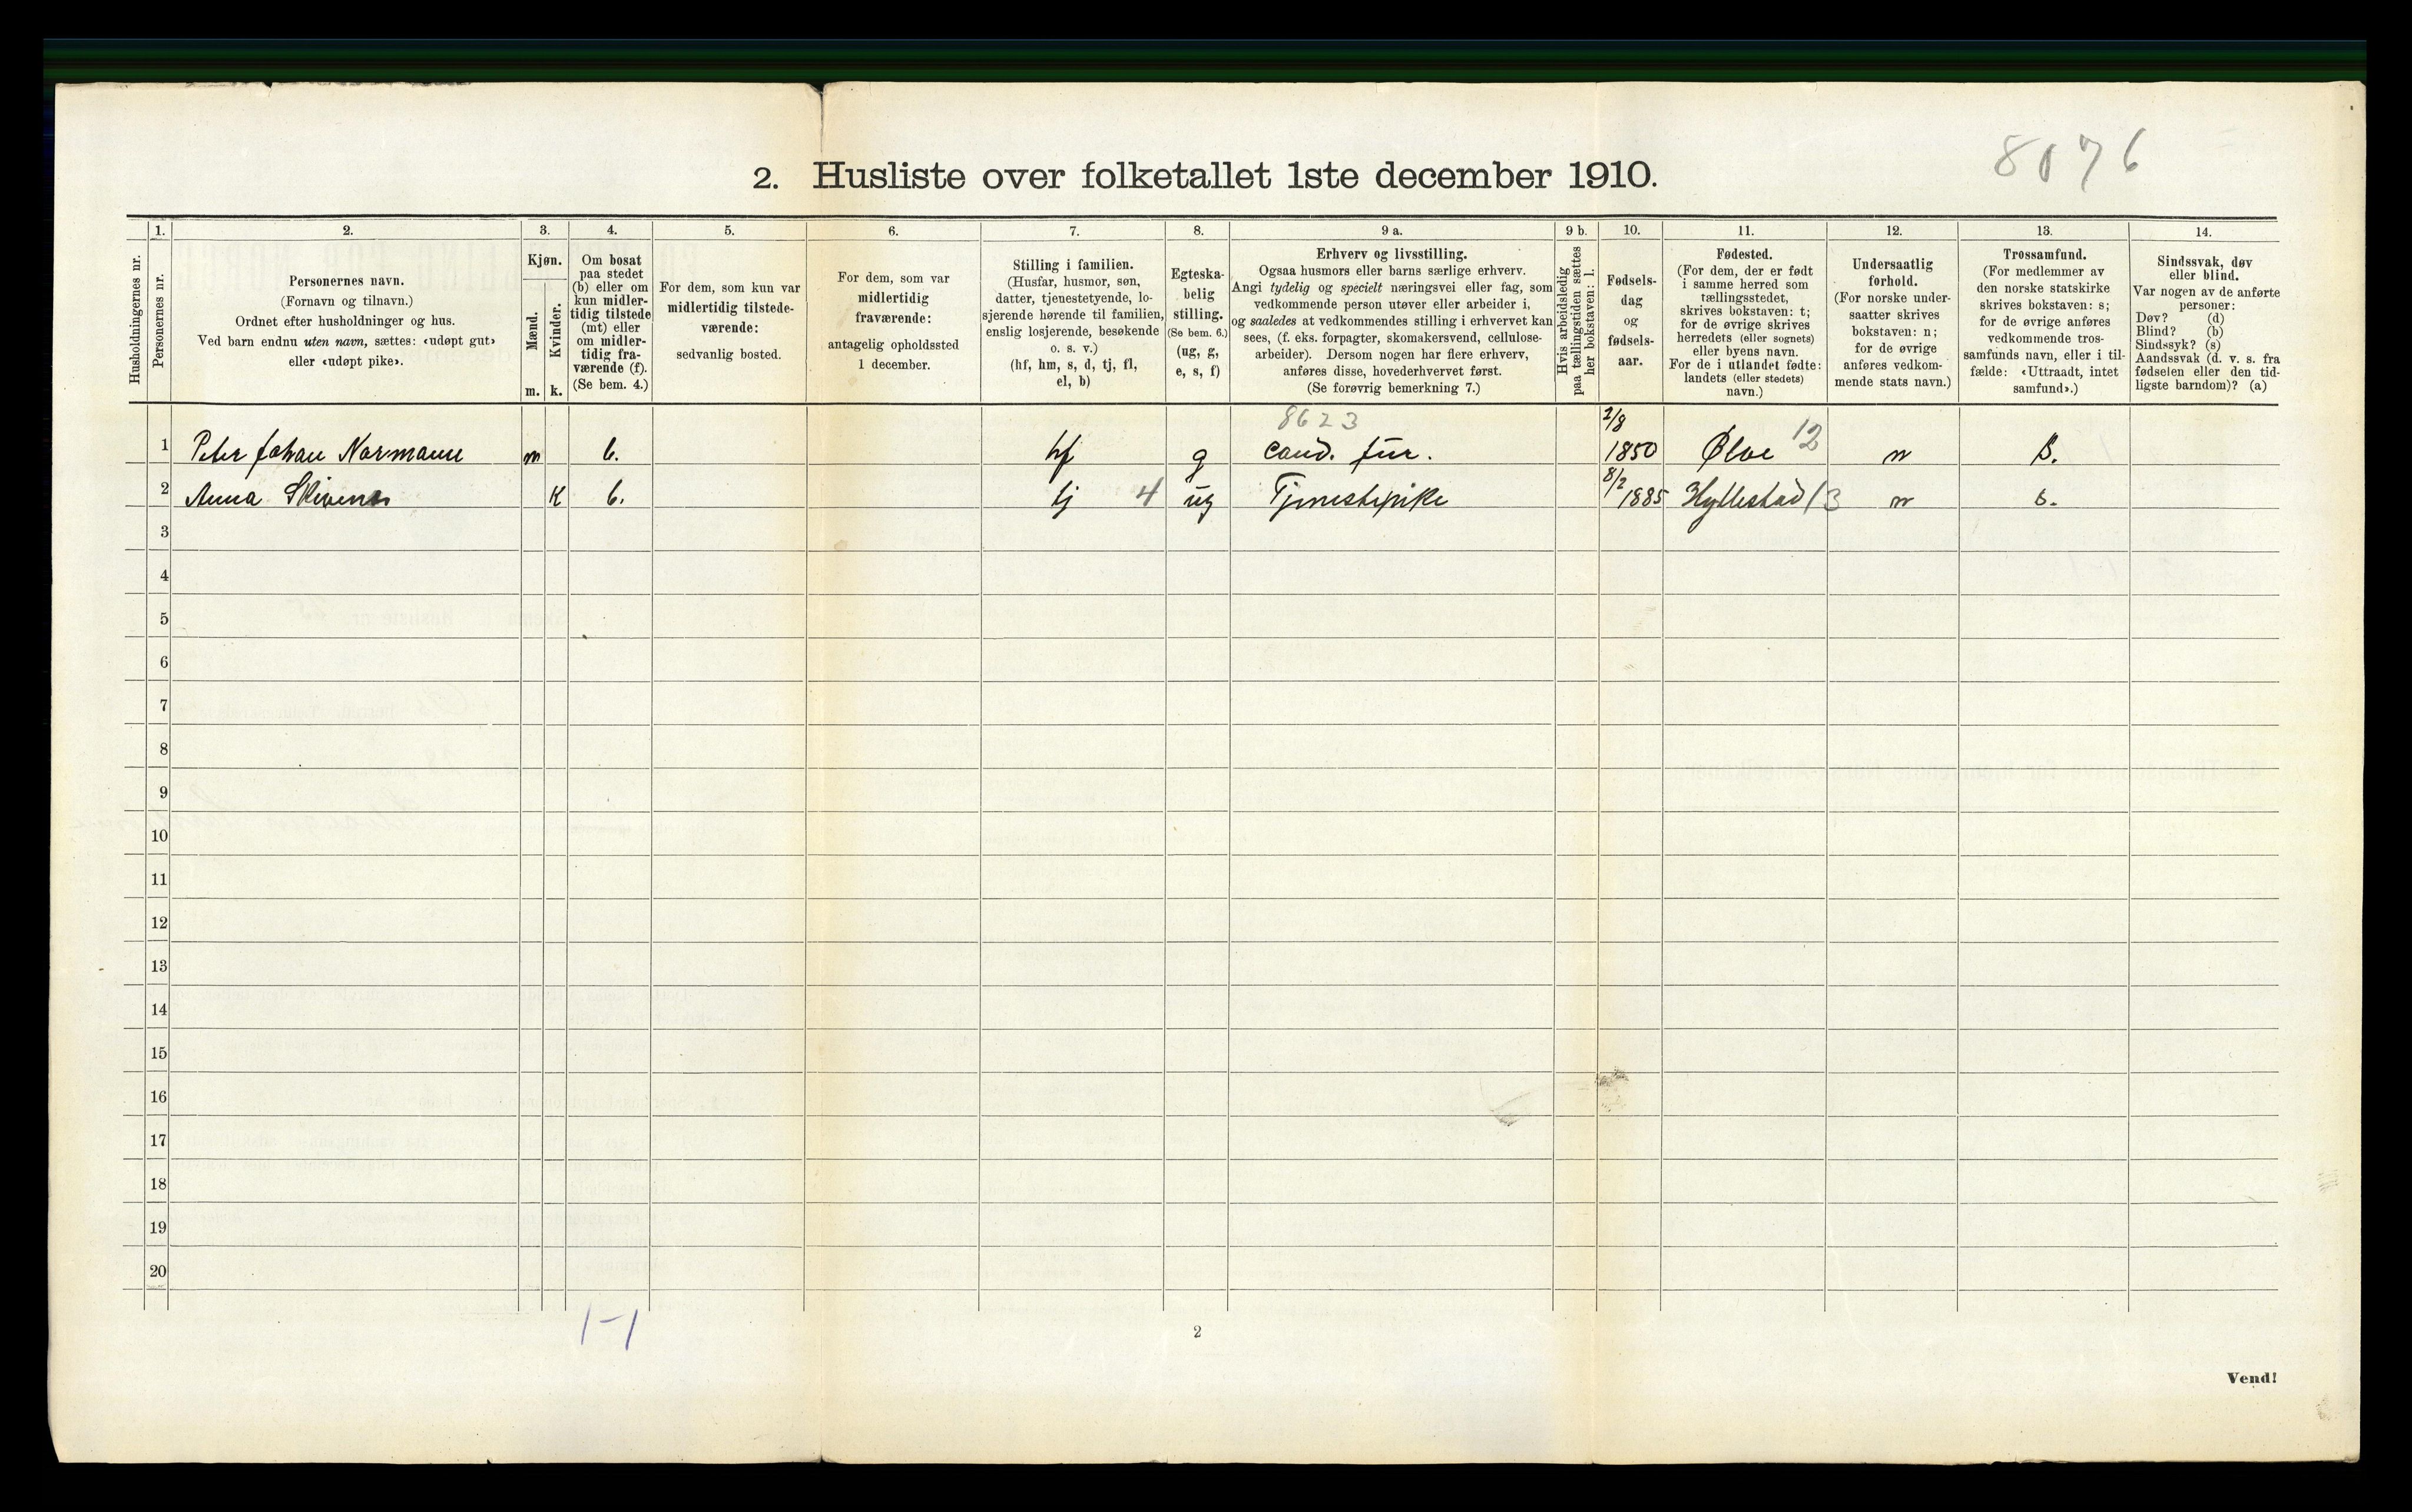 8076
2. Husliste over folketallet 1ste december 1910.
Husholdningernes nr.
1.
Personernes nr.
2.
Personernes navn.
(Fornavn og tilnavn.)
Ordnet efter husholdninger og hus.
Ved barn endnu uten navn, sættes: «udøpt gut»
eller «udøpt pike».
3.
Kjøn.
Mænd.
Kvinder.
m. k.
4.
Om bosat
paa stedet
(b) eller om
kun midler-
tidig tilstede
(mt) eller
om midler-
tidig fra-
værende (f).
(Se bem. 4.)
5.
For dem, som kun var
midlertidig tilstede-
værende:
sedvanlig bosted.
6.
For dem, som var
midlertidig
fraværende:
antagelig opholdssted
1 december.
7.
Stilling i familien.
(Husfar, husmor, søn,
datter, tjenestetyende, lo-
sjerende hørende til familien,
enslig losjerende, besøkende
o. s. v.)
(hf, hm, s, d, tj, fl,
el, b)
8.
Egteska-
belig
stilling.
(Se bem. 6.)
(ug, g,
e, s, f)
9 a.
Erhverv og livsstilling.
Ogsaa husmors eller barns særlige erhverv.
Angi tydelig og specielt næringsvei eller fag, som
vedkommende person utøver eller arbeider i,
og saaledes at vedkommendes stilling i erhvervet kan
sees, (f. eks. forpagter, skomakersvend, cellulose-
arbeider). Dersom nogen har flere erhverv,
anføres disse, hovederhvervet først.
(Se forøvrig bemerkning 7.)
9 b.
Hvis arbeidsledig
paa tællingstiden sættes
her bokstaven: l.
10.
Fødsels-
dag
og
fødsels-
aar.
11.
Fødested.
(For dem, der er født
i samme herred som
tællingsstedet,
skrives bokstaven: t;
for de øvrige skrives
herredets (eller sognets)
eller byens navn.
For de i utlandet fødte:
landets (eller stedets)
navn.)
12.
Undersaatlig
forhold.
(For norske under-
saatter skrives
bokstaven: n;
for de øvrige
anføres vedkom-
mende stats navn.)
13.
Trossamfund.
(For medlemmer av
den norske statskirke
skrives bokstaven: s;
for de øvrige anføres
vedkommende tros-
samfunds navn, eller i til-
fælde: «Uttraadt, intet
samfund».)
14.
Sindssvak, døv
eller blind.
Var nogen av de anførte
personer:
Døv? (d)
Blind? (b)
Sindssyk? (s)
Aandssvak (d. v. s. fra
fødselen eller den tid-
ligste barndom)? (a)
8623 2/8
1 Peter Johan Normann m b. hf g cand. jur. 1850 Ølve 12 n s.
2 Anna K b. tj 4 ug Tjenestepike 8/2 1885 Hyllestad 13 n s.
3
4
5
6
7
8
9
10
11
12
13
14
15
16
17
18
19
20
1-1
2
Vend!